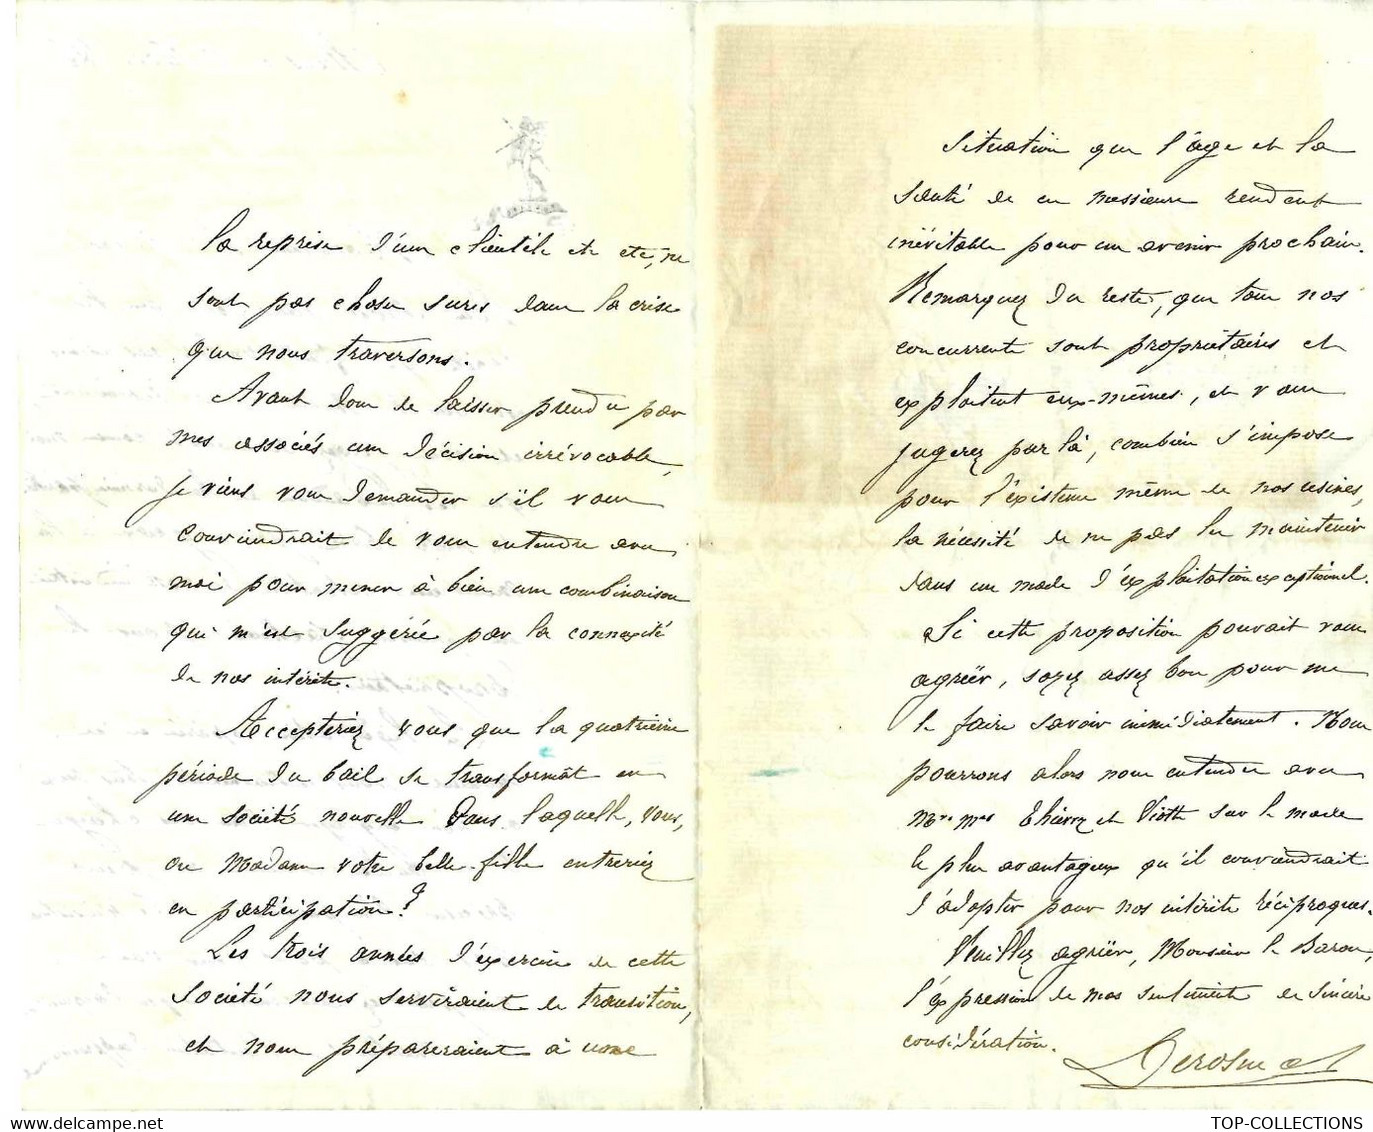 la reprise d'une clientèle etc etc, ne
sont pas choses sures dans la crise
que nous traversons.
Avant donc de laisser prendre par
mes associés une décision irrévocable,
je viens vous demander s'il vous
conviendrait de vous entendre avec
moi pour mener à bien une combinaison
qui m'est suggérée par la connexité
de nos intérêts.
Accepteriez vous que la quatrième
période du bail se transformât en
une société nouvelle dans laquelle, vous,
ou Madame votre belle-fille entreriez
en participation?
Les trois années d'exercice de cette
société nous serviraient de transition,
et nous prépareraient à une
situation que l'âge et la
santé de ces messieurs rendent
inévitable pour un avenir prochain.
Remarquez du reste, que tous nos
concurrents sont propriétaires et
exploitent eux-mêmes, et vous
jugerez par là, combien s'impose
pour l'existence même de nos usines,
la nécessité de ne pas les maintenir
dans un mode d'exploitation exceptionnel.
Si cette proposition pouvait vous
agréer, soyez assez bon pour me
le faire savoir immédiatement. Nous
pourrons alors nous entendre avec
Thierry et Viotte sur le mode
le plus avantageux qu'il conviendrait
d'adopter pour nos intérêts réciproques.
Veuillez agréer, Monsieur le Baron,
l'expression de mes sentiments de sincère
considération.
Derosne
TOP-COLLECTIONS